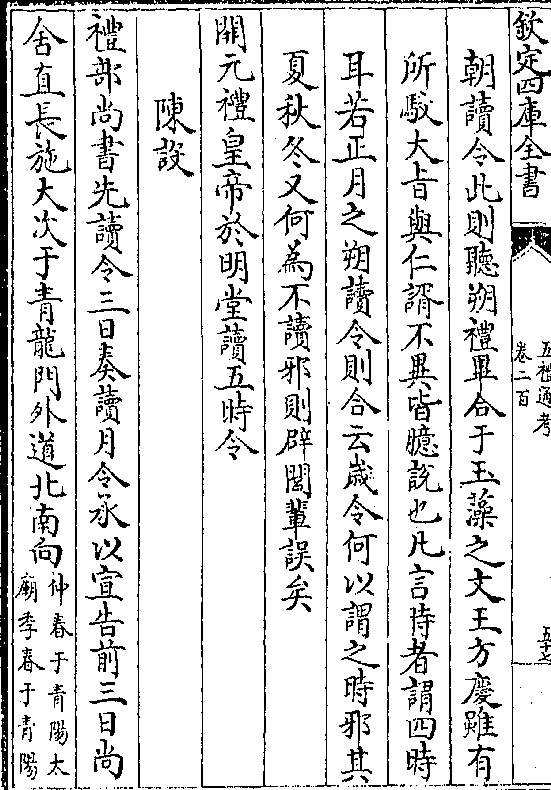 欽定四庫全書
五禮通考
卷二百
五十七
朝讀令此則聽朔禮畢合于玉藻之文王方慶雖有
所駮大旨與仁諝不異皆臆說也凡言時者謂四時
耳若正月之朔讀令則合云歲令何以謂之時邪其
夏秋冬又何為不讀邪則辟閭輩誤矣
開元禮皇帝於明堂讀五時令
陳設
禮部尚書先讀令三日奏讀月令承以宣告前三日尚
舍直長施大次于青龍門外道北南向
仲春于青陽太
廟季春于青陽